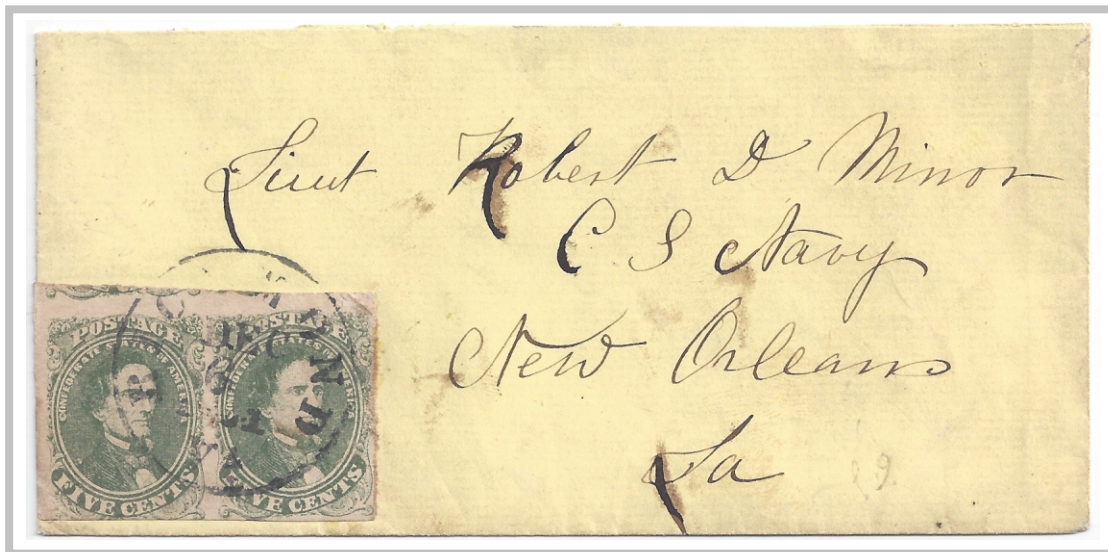 Lieut Robert D Minor
C S Navy
New Orleans
La
POSTAGE
CONFEDERATE STATES OF AMERICA
FIVE CENTS
POSTAGE
CONFEDERATE STATES OF AMERICA
FIVE CENTS
DEC